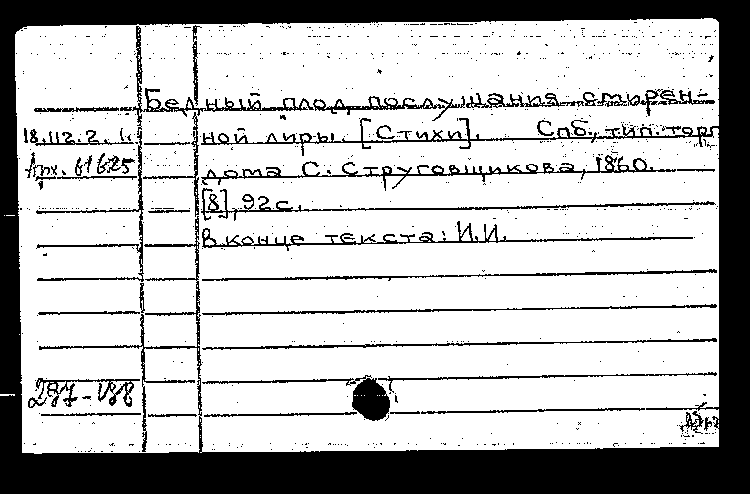 Бедный плод послушания смирен-
18.112.2.1. ной лиры. [Стихи]. Спб., тип. торг
Арх. 61625 дома С. Струговщикова, 1860.
[8], 92 с.
В конце текста: И.И.